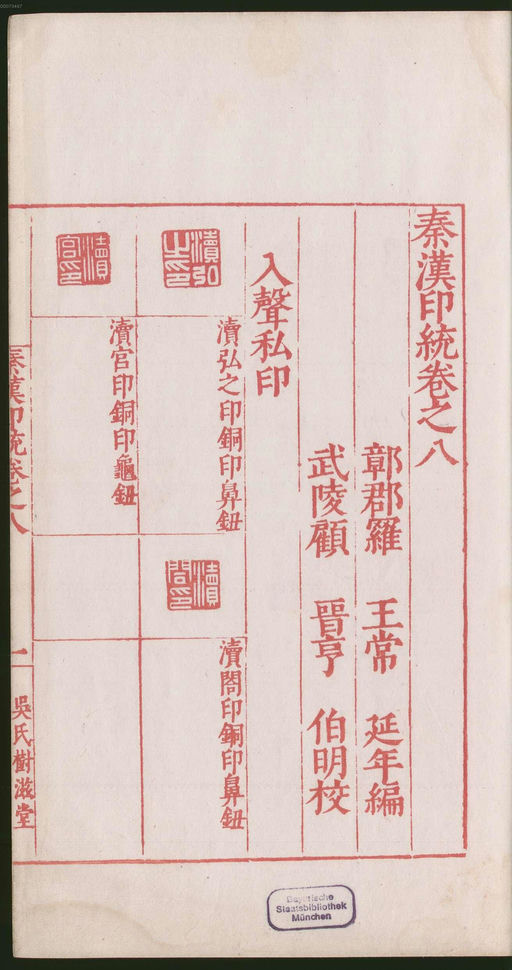 秦漢印統卷之八
鄣郡羅 王常 延年編
武陵顧 晋亨 伯明校
入聲私印
瀆弘之印
瀆弘之印銅印鼻鈕
瀆閤印
瀆閤印銅印鼻鈕
瀆官印
瀆官印銅印龜鈕
秦漢印統卷之八
一
吳氏樹滋堂
Bayerische
Staatsbibliothek
München
00073447